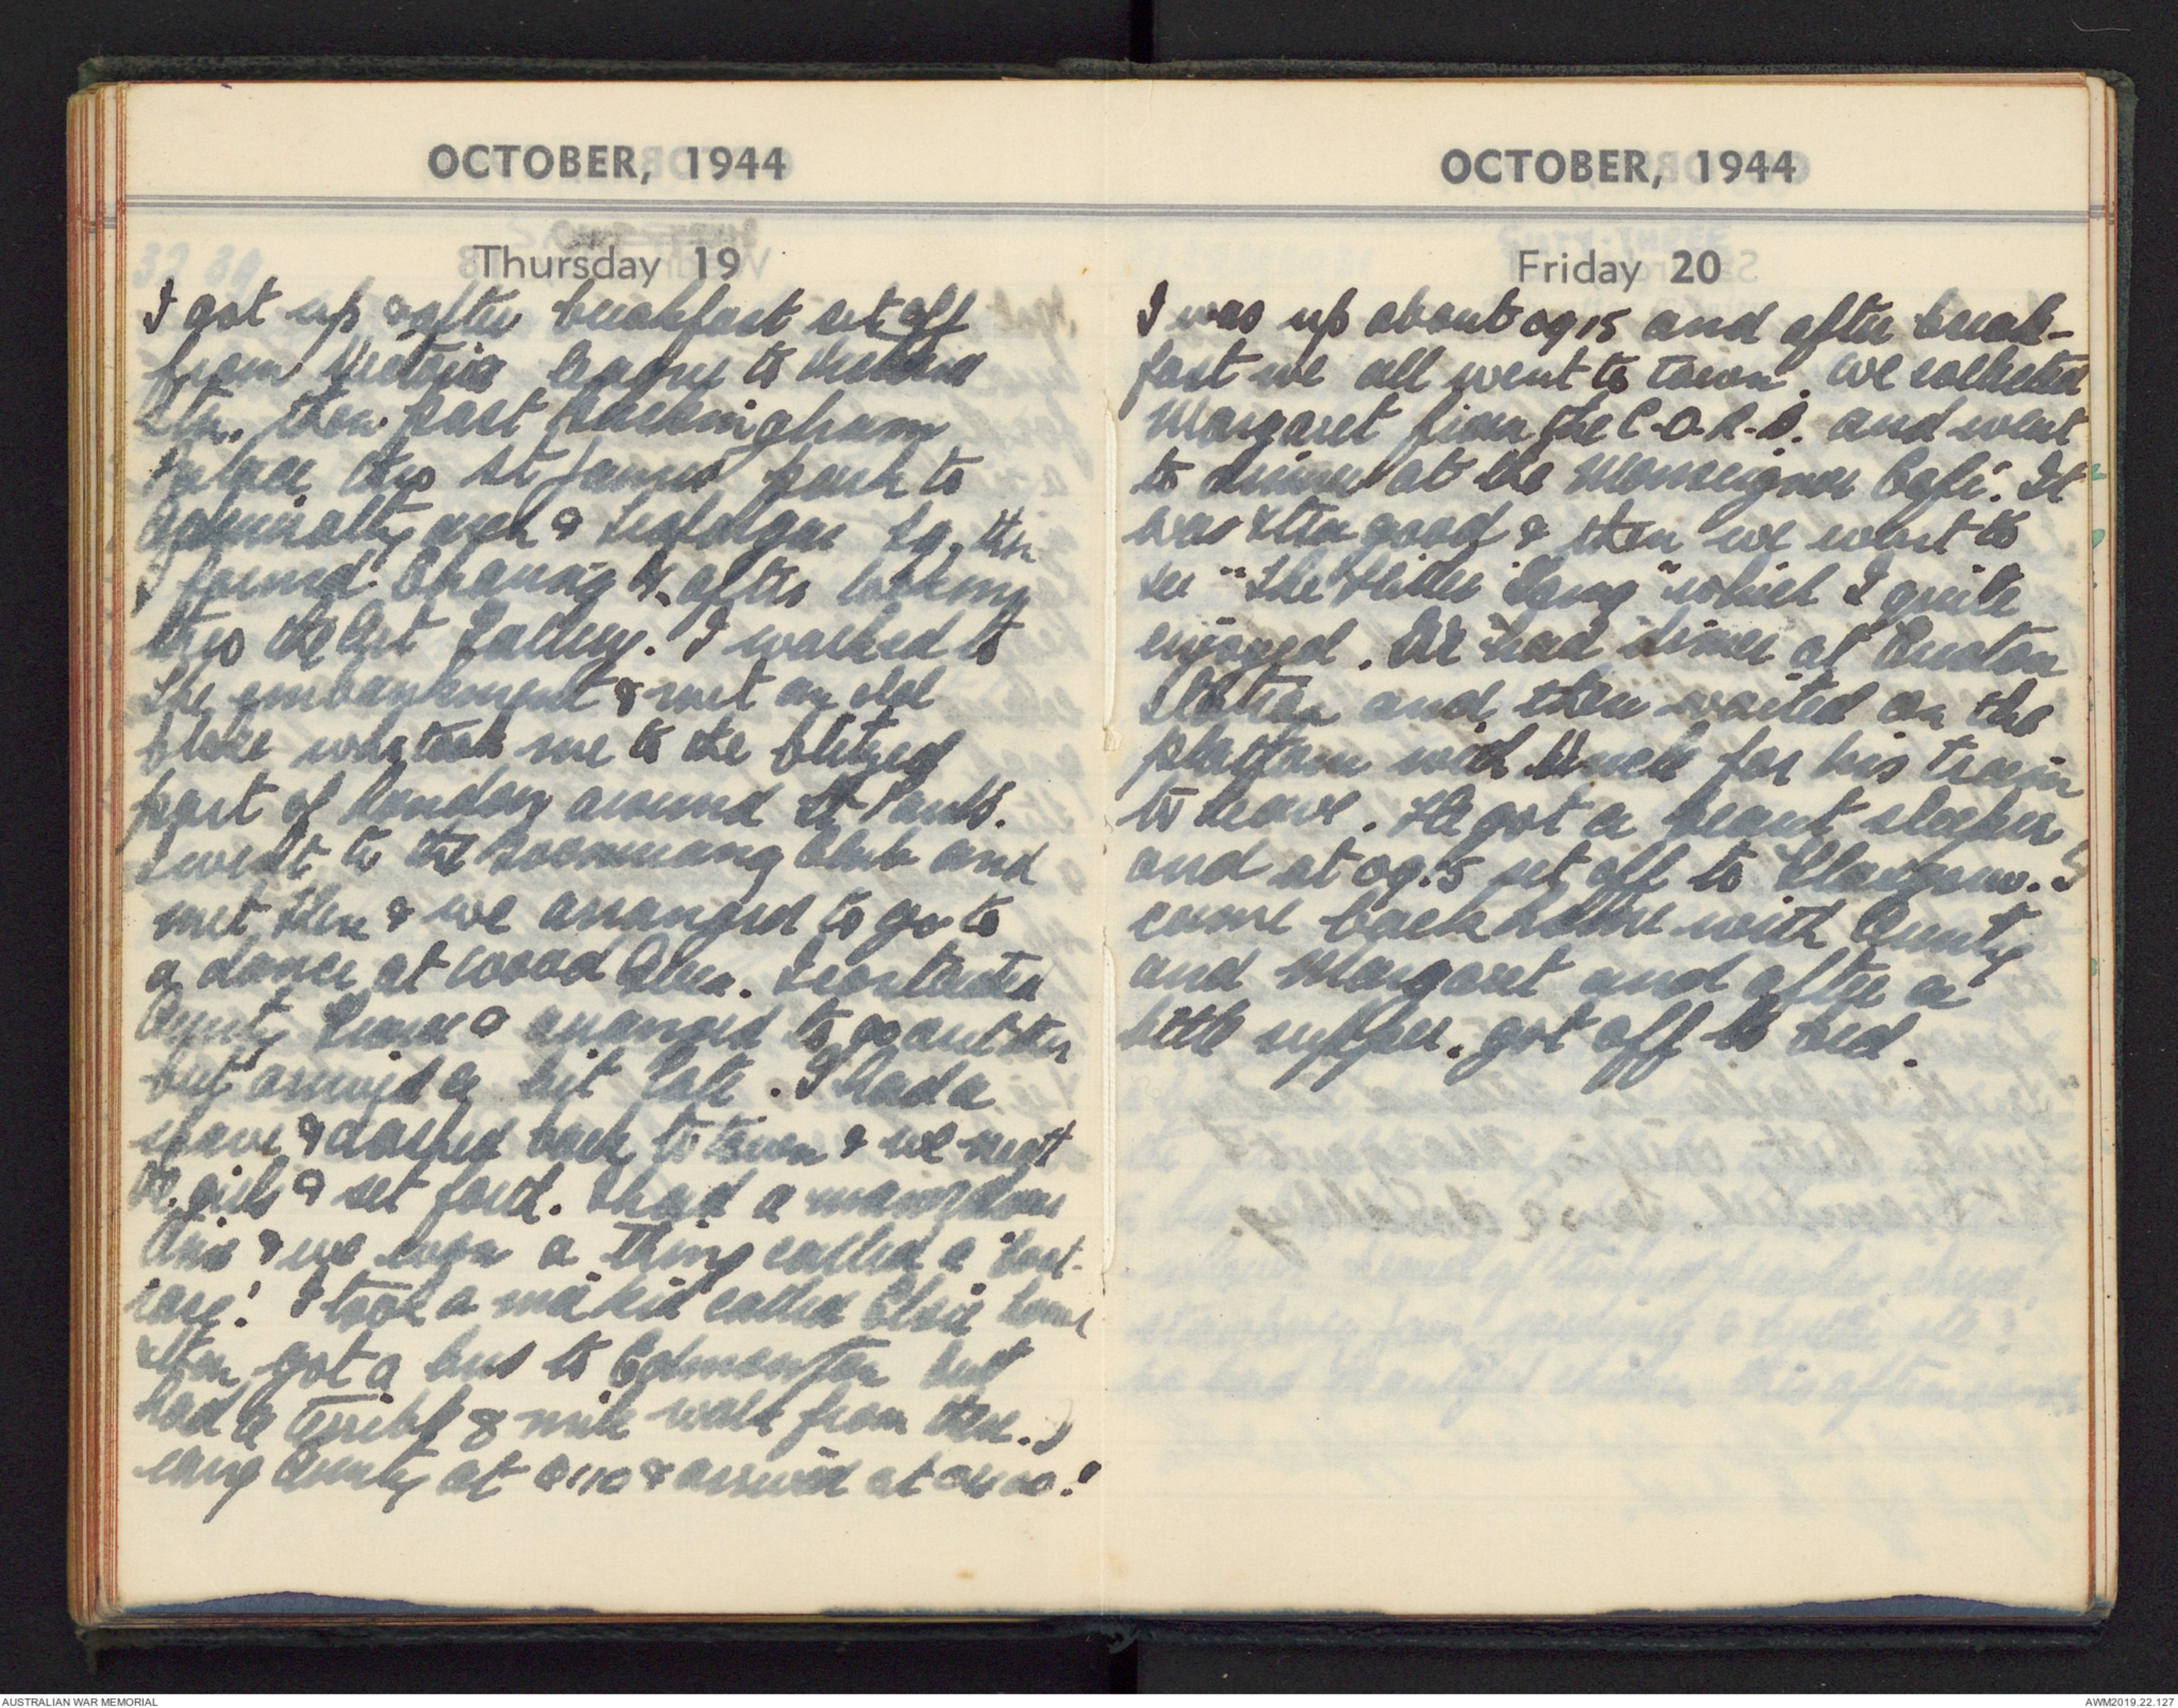 OCTOBER, 1944
Thursday 19
I got up & after breakfast set off
from Victoria League to Victoria
Stn. then past Buckingham
Palace thro St James park to
Admiralty arch & Trafalgar Sq. then
I found Charing X after looking
thro the Art Gallery. I walked to
the embankment & met an old
bloke who took me to the blitzed
part of London around St Pauls.
I went to the Boomerang Club and
met & we arranged to go to
a dance at Wood Green. I contacted
Aunty & arranged to go out there
but arrived a bit late. I had a
shave & dashed back to town & we met
the girls & set forth. I had a
time & we won a thing called a
case! I took a kid called Elsie home
then got a bus to Edmonton but
had a terrible 8 mile walk from there. I
rang Aunty at 0110 & arrived at
OCTOBER, 1944
Friday 20
I was up about 0915 and after break-
fast we all went to town. We collected
Margaret from the C.O.R.B. and went
to dinner at the Monseigneur Cafe. It
was xtra good & then we went to
see "The Hitler Gang" which I quite
enjoyed. We had dinner at Euston
Station and then waited on the
platform with for his train
to leave. He got a beaut sleeper
and at 09.15 set off to Glasgow. I
came back home with Aunty
and Margaret and after a
little supper, got off to bed.
AUSTRALIAN WAR MEMORIAL
AWM2019.22.127